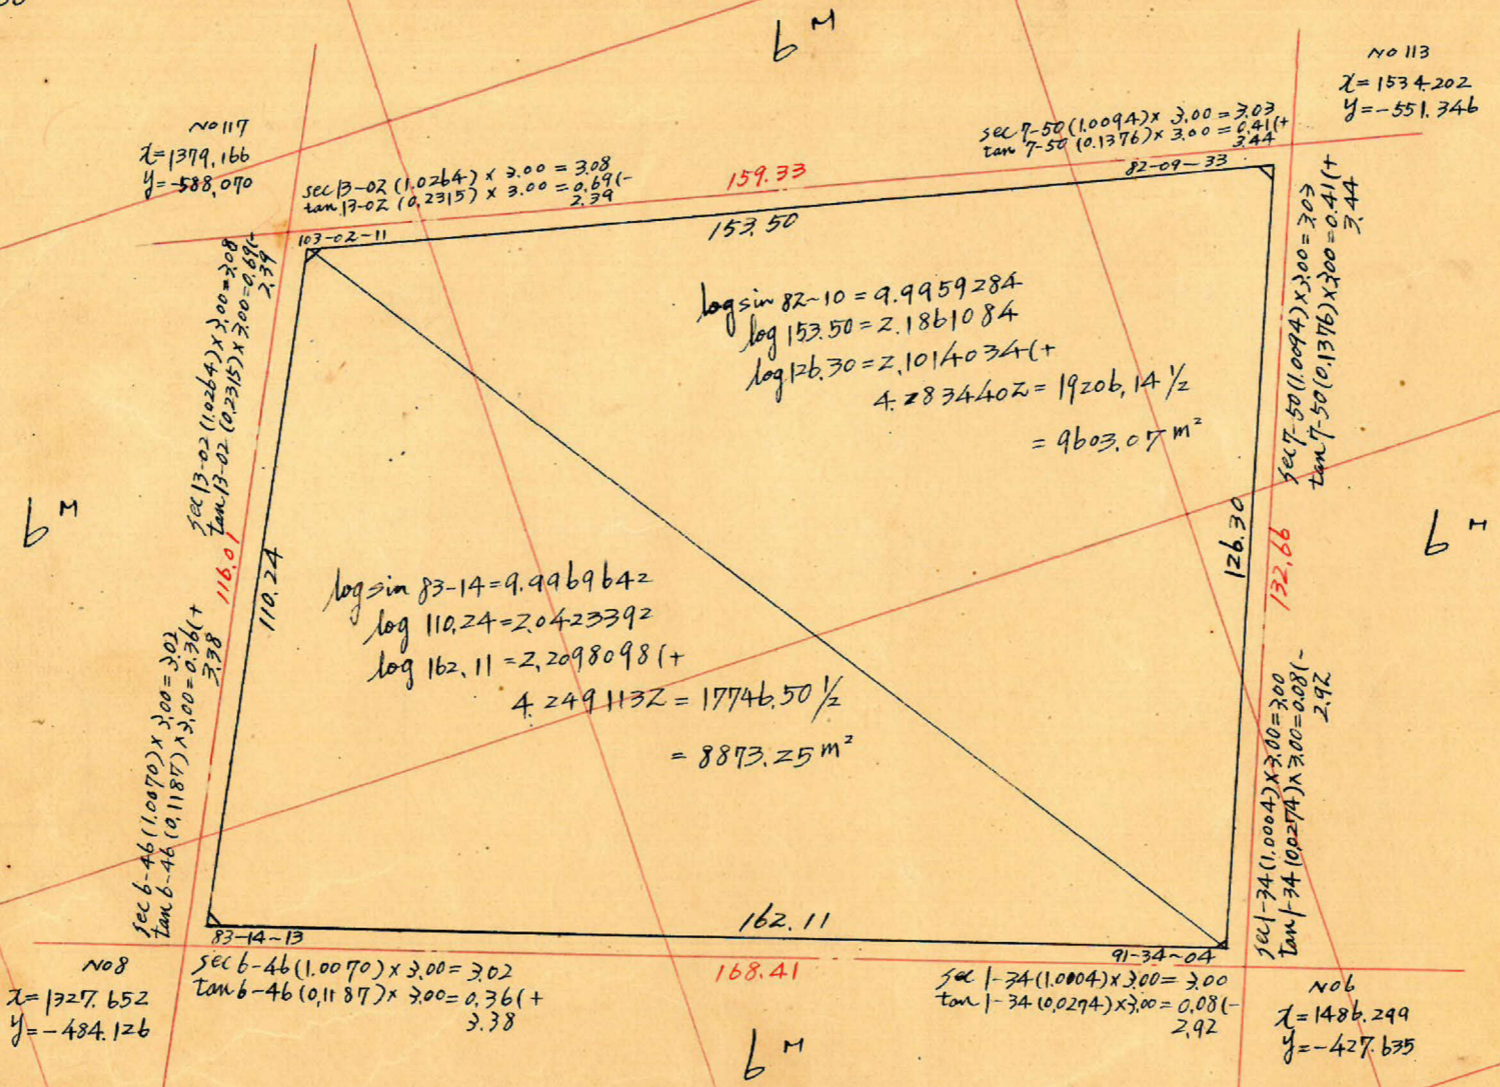 6 M
No 113
x=1534.202
y=-551.346
No 117
x=1379.166
y=-588.070
sec 7-50 (1.0094) x 3.00 = 3.03
tan 7-50 (0.1376) x 3.00 = 0.41(+
3.44
82-09-33
sec 13-02 (1.0264) x 3.00 = 3.08
tan 13-02 (0.2315) x 3.00 = 0.69(-
2.39
159.33
103-02-11
153.50
sec 13-02 (1.0264) x 3.00 = 3.08
tan 13-02 (0.2315) x 3.00 = 0.69(-
2.39
sec 7-50 (1.0094) x 3.00 = 3.03
tan 7-50 (0.1376) x 3.00 = 0.41(+
3.44
log sin 82-10 = 9.9959284
log 153.50 = 2.1861084
log 126.30 = 2.1014034(+
4.2834402 = 19206.14 1/2
= 9603.07 m²
6 M
116.01
110.24
126.30
132.66
6 M
log sin 83-14 = 9.9969642
log 110.24 = 2.0423392
log 162.11 = 2.2098098(+
4.2491132 = 17746.50 1/2
= 8873.25 m²
sec 6-46 (1.0070) x 3.00 = 3.02
tan 6-46 (0.1187) x 3.00 = 0.36(+
3.38
sec 1-34 (1.0004) x 3.00 = 3.00
tan 1-34 (0.0274) x 3.00 = 0.08(-
2.92
162.11
83-14-13
91-34-04
168.41
No 8
x=1327.652
y=-484.126
sec 6-46 (1.0070) x 3.00 = 3.02
tan 6-46 (0.1187) x 3.00 = 0.36(+
3.38
sec 1-34 (1.0004) x 3.00 = 3.00
tan 1-34 (0.0274) x 3.00 = 0.08(-
2.92
No 6
x=1486.299
y=-427.635
6 M